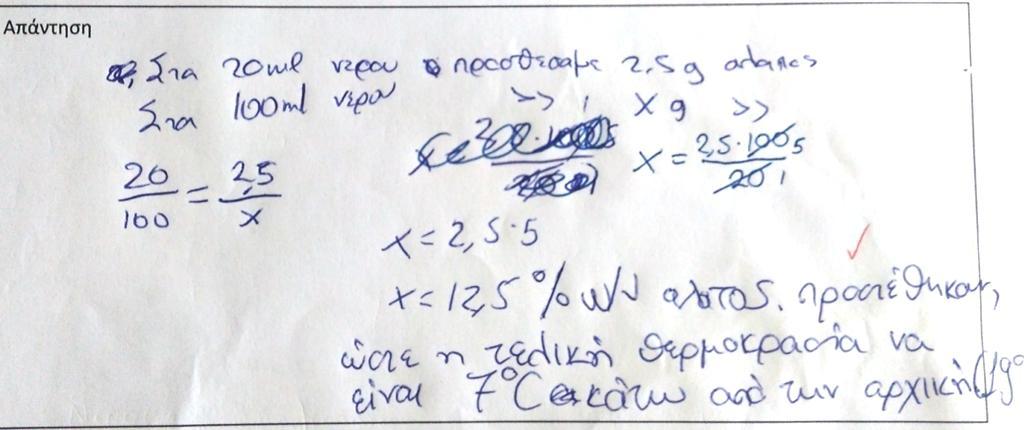 Απάντηση
Στα 20ml νερου προσθεσαμε 2,5g αλατος
Στα 100ml νερου >> , X g >>
20/100 = 2,5/x
x = 2,5·100 5/20 1
x = 2,5·5
x = 12,5 % w/v αλατος. προστέθηκαν,
ώστε η τελική θερμοκρασία να
είναι 7°C κάτω από την αρχική (19°